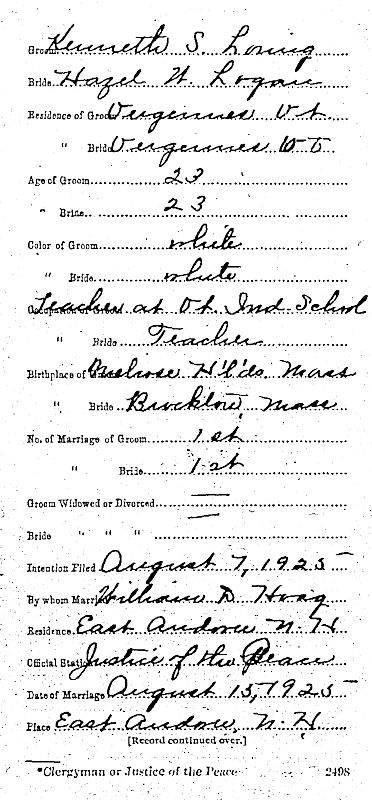 Groom Kenneth S. Loring
Bride Hazel W. Logan
Residence of Groom Vergennes Vt.
" Bride Vergennes Vt
Age of Groom 23
" Bride 23
Color of Groom white
" Bride white
Occupation of Groom Teacher at Vt. Ind. School
" Bride Teacher
Birthplace of Groom Melrose H'l'ds Mass
" Bride Brockton, Mass
No. of Marriage of Groom 1st
" Bride 1st
Groom Widowed or Divorced —
Bride " " " —
Intention Filed August 7, 1925
By whom Married William D. Hoag
Residence East Andover N. H
Official Station Justice of the Peace
Date of Marriage August 15, 1925
Place East Andover, N. H
[Record continued over.]
*Clergyman or Justice of the Peace 2498